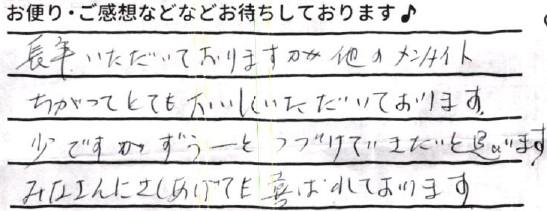 お便り・ご感想などなどお待ちしております♪
長年いただいておりますが他のメンタイト
ちがってとてもおいしくいただいております。
少ですがずうーとつづけていきたいと思います
みなさんにさしあげても喜ばれております